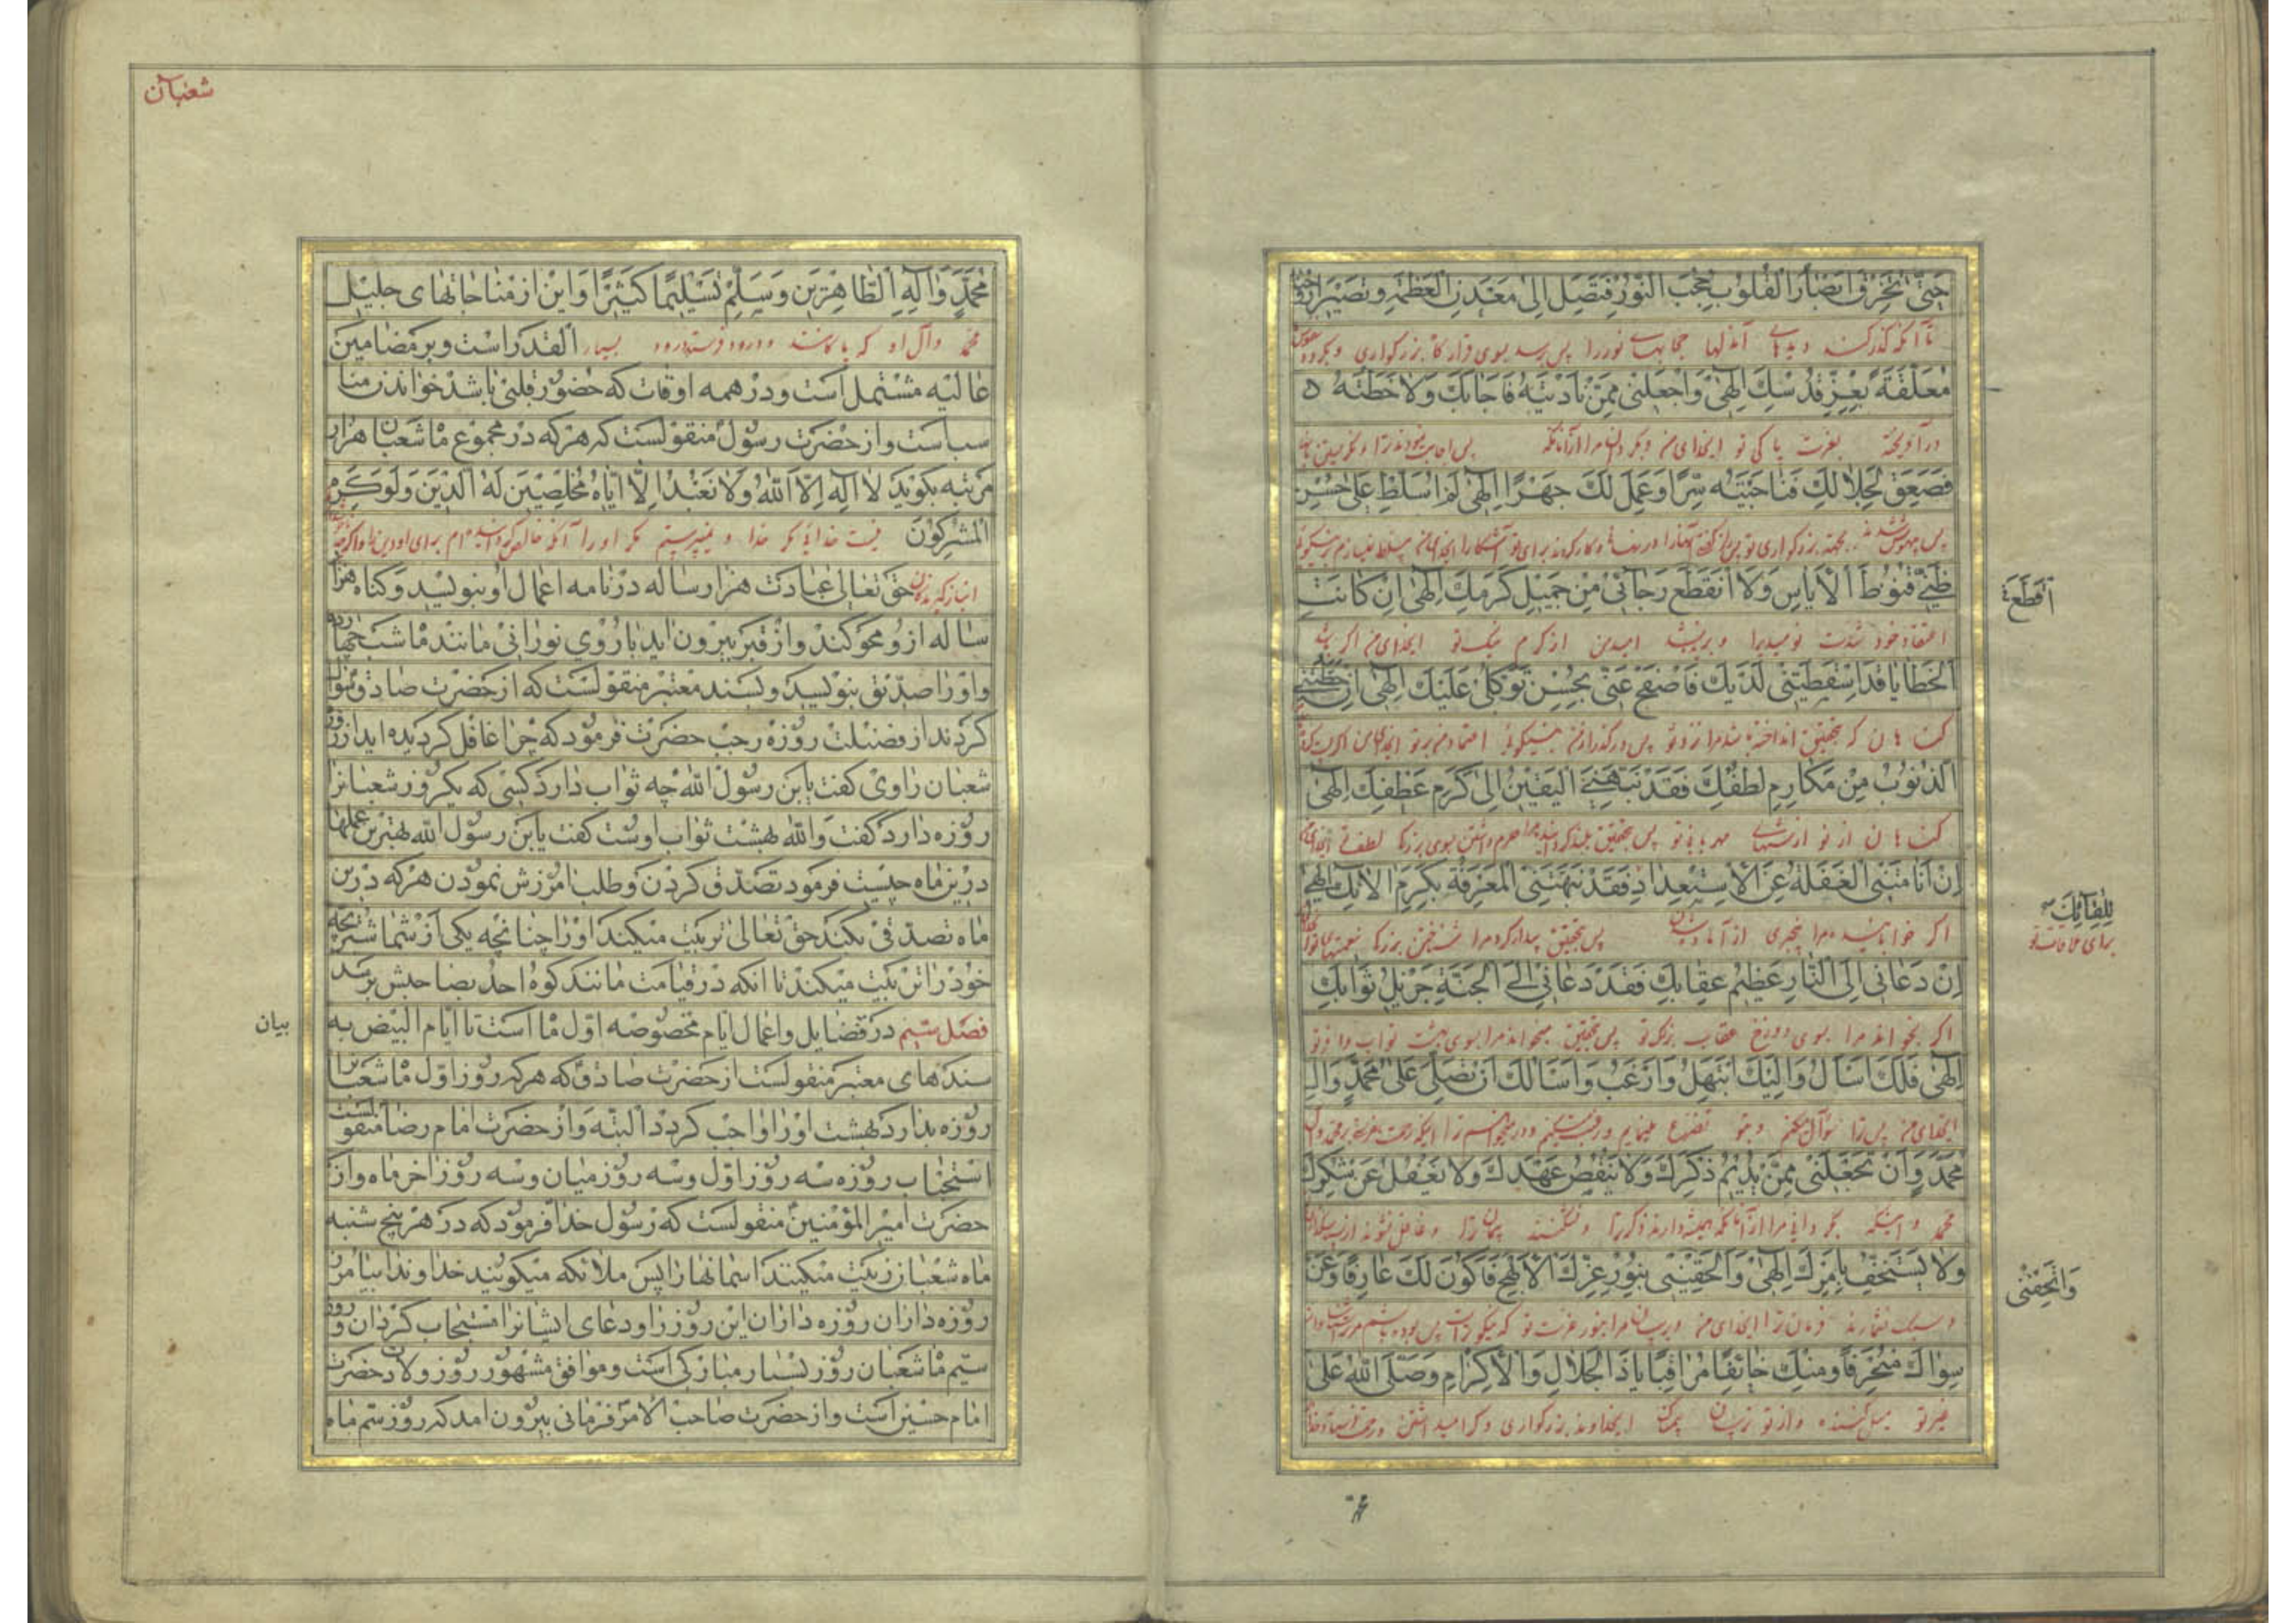 حَتّىٰ تَخْرِقَ اَبْصٰارُ الْقُلُوبِ حُجُبَ النُّورِ فَتَصِلَ اِلىٰ مَعْدِنِ الْعَظَمَةِ وَتَصيرَ اَرْوٰاحُنٰا
تا آنکه گذر کند دیدهای آندلها حجابهای نور را پس برسد بسوی قرارگاه بزرگواری و بگردد
مُعَلَّقَةً بِعِزِّ قُدْسِكَ اِلٰهى وَاجْعَلْنى مِمَّنْ نٰادَيْتَهُ فَاَجٰابَكَ وَلاٰحَظْتَهُ
درآویخته بعزت پاکی تو ایخدای من و بگردان مرا از آنانکه پس اجابت نمودند ترا
فَصَعِقَ لِجَلاٰلِكَ فَنٰاجَيْتَهُ سِرًّا وَعَمِلَ لَكَ جَهْرًا اِلٰهى لَمْ اُسَلِّطْ عَلىٰ حُسْنِ
پس بیهوش شدند بجهة بزرگواری تو
ظَنّى قُنُوطَ الْاَيٰاسِ وَلاَ انْقَطَعَ رَجٰائى مِنْ جَميلِ كَرَمِكَ اِلٰهى اِنْ كٰانَتِ
اَقْطَعُ
اعتقاد خود شدت نومیدیرا و بریده نشد امیدمن از کرم نیک تو ایخدای من اگر باشد
الْخَطٰايٰا قَدْ اَسْقَطَتْنى لَدَيْكَ فَاصْفَحْ عَنّى بِحُسْنِ تَوَكُّلى عَلَيْكَ اِلٰهى اِنْ حَطَّتْنى
گناهان که بتحقیق انداخته باشد مرا نزد تو پس درگذر از من بنیکوئی اعتماد من بر تو ایخدای من
الذُّنُوبُ مِنْ مَكٰارِمِ لُطْفِكَ فَقَدْ نَبَّهَنِى الْيَقينُ اِلىٰ كَرَمِ عَطْفِكَ اِلٰهى
گناهان از تو مهربانی تو پس بتحقیق
اِنْ اَنٰامَتْنِى الْغَفْلَةُ عَنِ الْاِسْتِعْدٰادِ فَقَدْ نَبَّهَتْنِى الْمَعْرِفَةُ بِكَرَمِ اٰلاٰئِكَ اِلٰهى
لِلِقٰائِكَ
برای ملاقات تو
اگر خوابانیده مرا بیخبری از آماده شدن پس بتحقیق بیدار کرد مرا شناختن بزرگی نعمتهای تو
اِنْ دَعٰانى اِلَى النّٰارِ عَظيمُ عِقٰابِكَ فَقَدْ دَعٰانى اِلَى الْجَنَّةِ جَزيلُ ثَوٰابِكَ
اگر بخواند مرا بسوی دوزخ عقاب بزرگ تو پس بتحقیق میخواند مرا بسوی بهشت ثواب وافر تو
اِلٰهى فَلَكَ اَسْأَلُ وَاِلَيْكَ اَبْتَهِلُ وَاَرْغَبُ وَاَسْأَلُكَ اَنْ تُصَلِّىَ عَلىٰ مُحَمَّدٍ وَاٰلِ
ایخدای من پس ترا سؤال میکنم و بتو تضرع مینمایم و رغبت میکنم
مُحَمَّدٍ وَاَنْ تَجْعَلَنى مِمَّنْ يُديمُ ذِكْرَكَ وَلاٰ يَنْقُضُ عَهْدَكَ وَلاٰ يَغْفُلُ عَنْ شُكْرِكَ
محمد و اینکه بگردانی مرا از آنانکه همیشه دارند ذکر ترا و نشکنند پیمان ترا و غافل نشوند
وَلاٰ يَسْتَخِفُّ بِاَمْرِكَ اِلٰهى وَاَلْحِقْنى بِنُورِ عِزِّكَ الْاَبْهَجِ فَاَكُونَ لَكَ عٰارِفًا وَعَنْ
وَاَتْحِفْنى
و سبک نشمارند فرمان ترا ایخدای من و برسان مرا بنور عزت تو
سِوٰاكَ مُنْحَرِفًا وَمِنْكَ خٰائِفًا مُرٰاقِبًا يٰا ذَا الْجَلاٰلِ وَالْاِكْرٰامِ وَصَلَّى اللّٰهُ عَلىٰ
غیر تو میل کننده و از تو ترسان ایخداوند بزرگواری و گرامی داشتن
محمد
شعبان
مُحَمَّدٍ وَاٰلِهِ الطّٰاهِرينَ وَسَلَّمَ تَسْليمًا كَثيرًا و این از مناجاتهای جلیل
محمد و آل او که پاکانند و درود فرستد درود بسیار القدر است و بر مضامین
عالیه مشتمل است و در همه اوقات که حضور قلبی باشد خواندن منا
سب است و از حضرت رسول منقولست که هرکه در مجموع ماه شعبان هزار
مرتبه بگوید لاٰ اِلٰهَ اِلَّا اللّٰهُ وَلاٰ نَعْبُدُ اِلّاٰ اِيّٰاهُ مُخْلِصينَ لَهُ الدّينَ وَلَوْ كَرِهَ
الْمُشْرِكُونَ نیست خدائی مگر خدا و نمیپرستیم مگر او را
انبازگیرندگان حق تعالی عبادت هزار ساله در نامه اعمال او بنویسد و گناه هزار
ساله ازو محو کند و از قبر بیرون اید با روی نورانی مانند ماه شب چهارده
و او را صدیق بنویسد و بسند معتبر منقولست که از حضرت صادق سؤال
کردند از فضیلت روزه رجب حضرت فرمود که چرا غافل گردیده اید از روزه
شعبان راوی گفت یابن رسول الله چه ثواب دارد کسی که یکروز شعبانرا
روزه دارد گفت والله بهشت ثواب اوست گفت یابن رسول الله بهترین عملها
درین ماه چیست فرمود تصدق کردن و طلب امرزش نمودن هرکه درین
ماه تصدقی بکند حق تعالی تربیت میکند او را چنانچه یکی از شما شتربچه
خود را تربیت میکند تا انکه در قیامت مانند کوه احد بصاحبش برسد
فصل سیم در فضایل و اعمال ایام مخصوصه اول ماه است تا ایام البیض به
بیان
سندهای معتبر منقولست از حضرت صادق که هرکه روز اول ماه شعبانرا
روزه بدارد بهشت او را واجب گردد البته و از حضرت امام رضا منقولست
استحباب روزه سه روز اول و سه روز میان و سه روز اخر ماه و از
حضرت امیر المؤمنین منقولست که رسول خدا فرمود که در هر پنج شنبه
ماه شعبان زینت میکنند اسمانها را پس ملائکه میگویند خداوندا بیامرز
روزه داران روزه داران این روز را و دعای ایشانرا مستجاب گردان و روز
سیم ماه شعبان روز بسیار مبارکی است و موافق مشهور روز ولادت حضرت
امام حسین است و از حضرت صاحب الامر فرمانی بیرون امد که روز سیم ماه